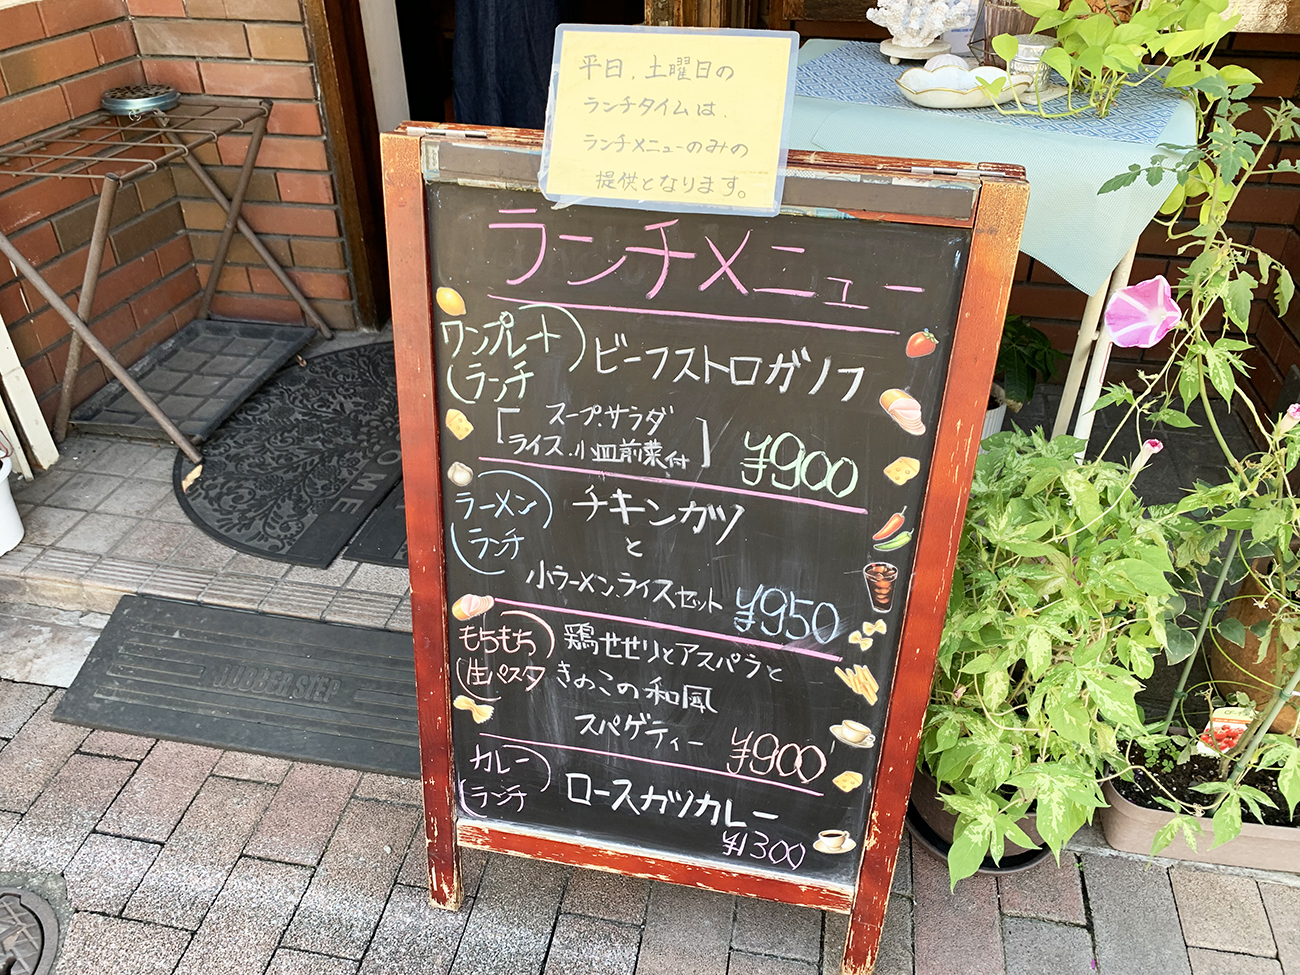 平日、土曜日の
ランチタイムは、
ランチメニューのみの
提供となります。
ランチメニュー
ワンプレート
ランチ
ビーフストロガノフ
スープ.サラダ
ライス.小皿前菜付
¥900
ラーメン
ランチ
チキンカツ
と
小ラーメン.ライスセット ¥950
もちもち
生パスタ
鶏せせりとアスパラと
きのこの和風
スパゲティー
¥900
カレー
ランチ
ロースカツカレー
¥1300
RUBBER STEP